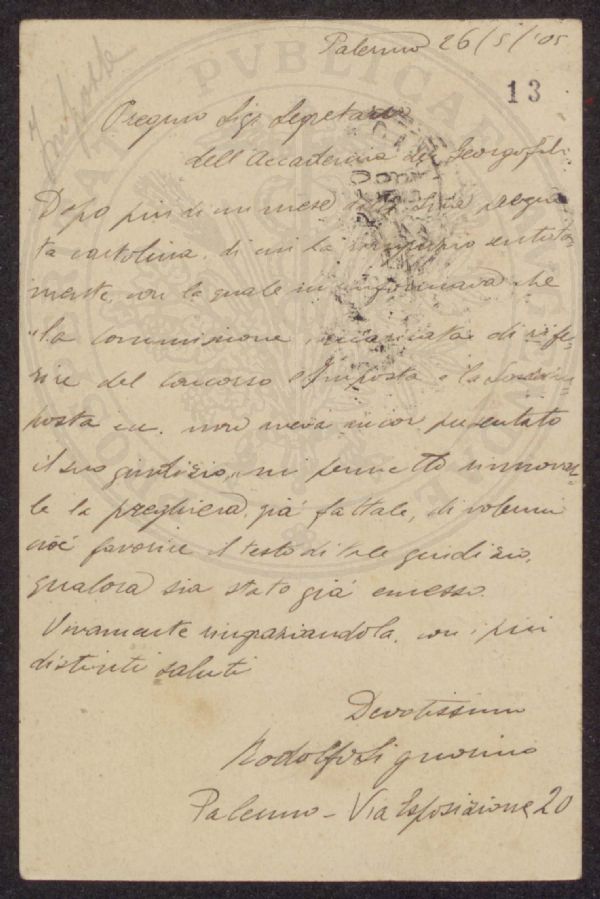 Imposte
Palermo 26/5/'05
13
Pregmo Sigr Segretario
dell'Accademia dei Georgofili
Dopo più di un mese dalla sua pregia-
ta cartolina, di cui La ringrazio sentita-
mente, con la quale mi informava che
"la commissione incaricata di rife-
rire del concorso l'Imposta e la Sovrim-
posta ecc. non aveva ancor presentato
il suo giudizio", mi permetto rinnovar-
le la preghiera, già fattale, di volermi
cioè favorire il testo di tale giudizio,
qualora sia stato già emesso.
Vivamente ringraziandola, con i più
distinti saluti
Devotissimo
Rodolfo Signorino
Palermo - Via Esposizione, 20